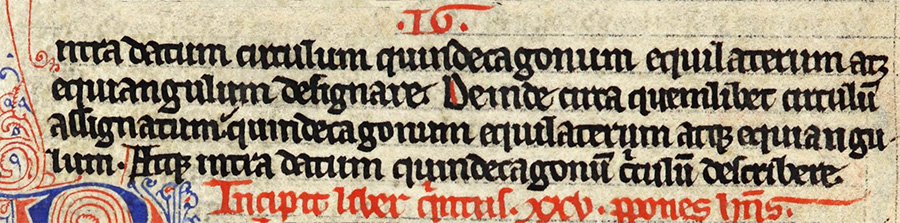 .16.
ntra datum circulum quindecagonum equilaterum atqꝫ
equiangulum designare. Deinde circa quemlibet circulū
assignatum quindecagonum equilaterum atqꝫ equiangu-
lum. Atqꝫ intra datum quindecagonū circulū describere.
Incipit liber quintus. XXV. ꝓpōnes